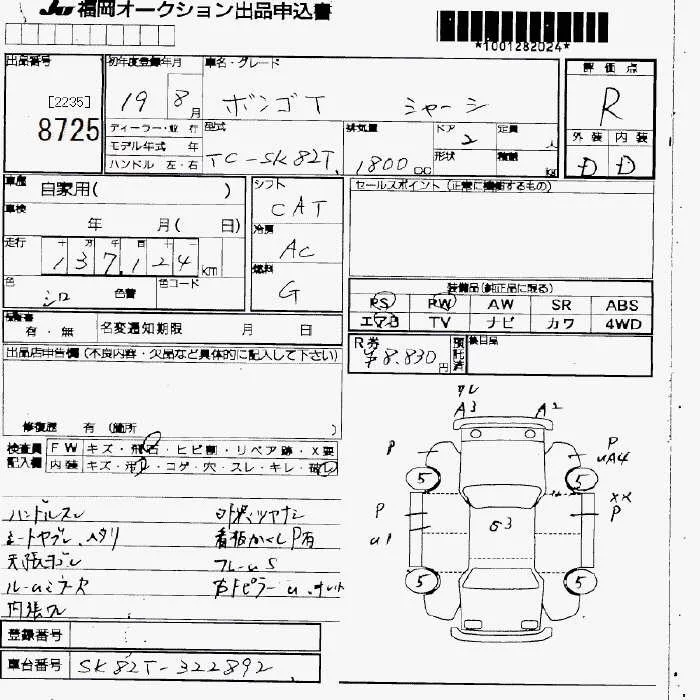 JU 福岡オークション出品申込書
*1001282024*
出品番号
[2235]
8725
初年度登録年月
19 8月
車名・グレード
ボンゴT
評価点
R
外装 内装
D D
ディーラー・並行
モデル年式 年
ハンドル 左・右
型式
TC-SK82T
排気量
1800 CC
ドア
2
形状
定員
人
積載
kg
車歴
自家用( )
車検
年 月( 日)
走行
十 万 千 百 十
137,124 km
色
シロ
色替
色コード
シフト
CAT
冷房
AC
燃料
G
セールスポイント (正常に機能するもの)
装備品(純正品に限る)
PS PW AW SR ABS
エアB TV ナビ カワ 4WD
保証書
有・無
名変通知期限 月 日
R券
¥8,830円
預託済
後日品
出品店申告欄 (不良内容・欠品など具体的に記入して下さい)
修復歴 有 (箇所 )
検査員
記入欄
FW キズ・飛石・ヒビ割・リペア跡・X要
内装 キズ・汚レ・コゲ・穴・スレ・キレ・破レ
ハンドルスレ
シートヤブレ、ヘタリ
天張ヨゴレ
内張ワレ
看板かくしP有
登録番号
車台番号 SK82T-322892
ワレ
A3 A2
P P
UA4
5 5
P G3 XX
U1 P
5 5